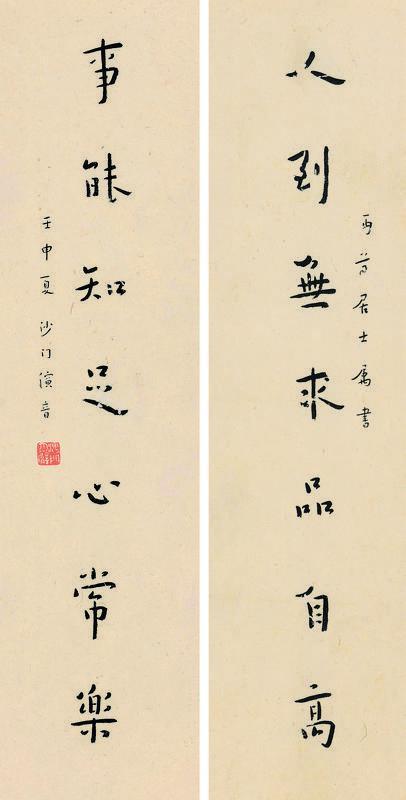 居士属書
人到無求品自高
事能知足心常樂
壬申夏 沙门演音